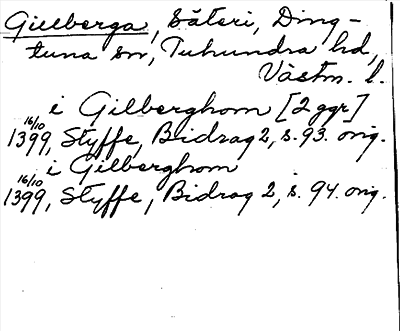 Gilberga, Säteri, Ding-
tuna sn, Tuhundra hd,
Västm. l.
i Gilberghom [2 ggr]
16/10 1399, Styffe, Bidrag 2, s. 93. orig.
i Gilberghom
16/10 1399, Styffe, Bidrag 2, s. 94. orig.